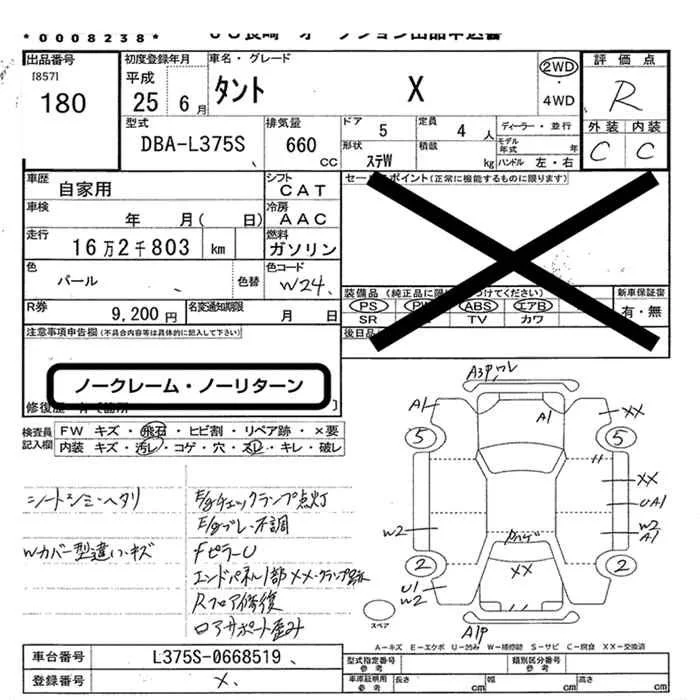 *0008238*
出品番号
[857]
180
初度登録年月
平成
25 6月
車名・グレード
タント X
2WD
・
4WD
評価点
R
外装 内装
C C
型式
DBA-L375S
排気量
660
CC
ドア 5
定員 4人
ディーラー・並行
形状
ステW
積載 kg
モデル年式 年
ハンドル 左・右
車歴
自家用
シフト
CAT
セールスポイント(正常に機能するものに限ります)
車検
年 月( 日)
冷房
AAC
走行
16万2千803 km
燃料
ガソリン
色
パール
色替
色コード
W24
装備品(純正品に限
つけてください)
新車保証書
有・無
PS PW ABS エアB
SR TV カワ
R券
9,200円
名変通知期限
月 日
後日品
注意事項申告欄(不具合内容等は具体的に記入して下さい)
ノークレーム・ノーリターン
検査員記入欄
FW キズ・飛石・ヒビ割・リペア跡・×要
内装 キズ・汚レ・コゲ・穴・スレ・キレ・破レ
シートシミ・ヘタリ
Wカバー型違い・キズ
E/gチェックランプ点灯
E/gブレ・不調
FピラーU
エンドパネル1部XX・クランプ跡
Rフロア修復
ロアサポート歪み
A3P ワレ
A1
A1
XX
5
5
XX
UA1
W2
A1
W2
2
2
XX
U1
W2
A1P
スペア
A=キズ E=エクボ U=凹み W=補修跡 S=サビ C=腐食 XX=交換済
車台番号
L375S-0668519
登録番号
×
型式指定番号
参考
類別区分番号
参考
車庫証明用
参考
長さ cm
幅 cm
高さ cm